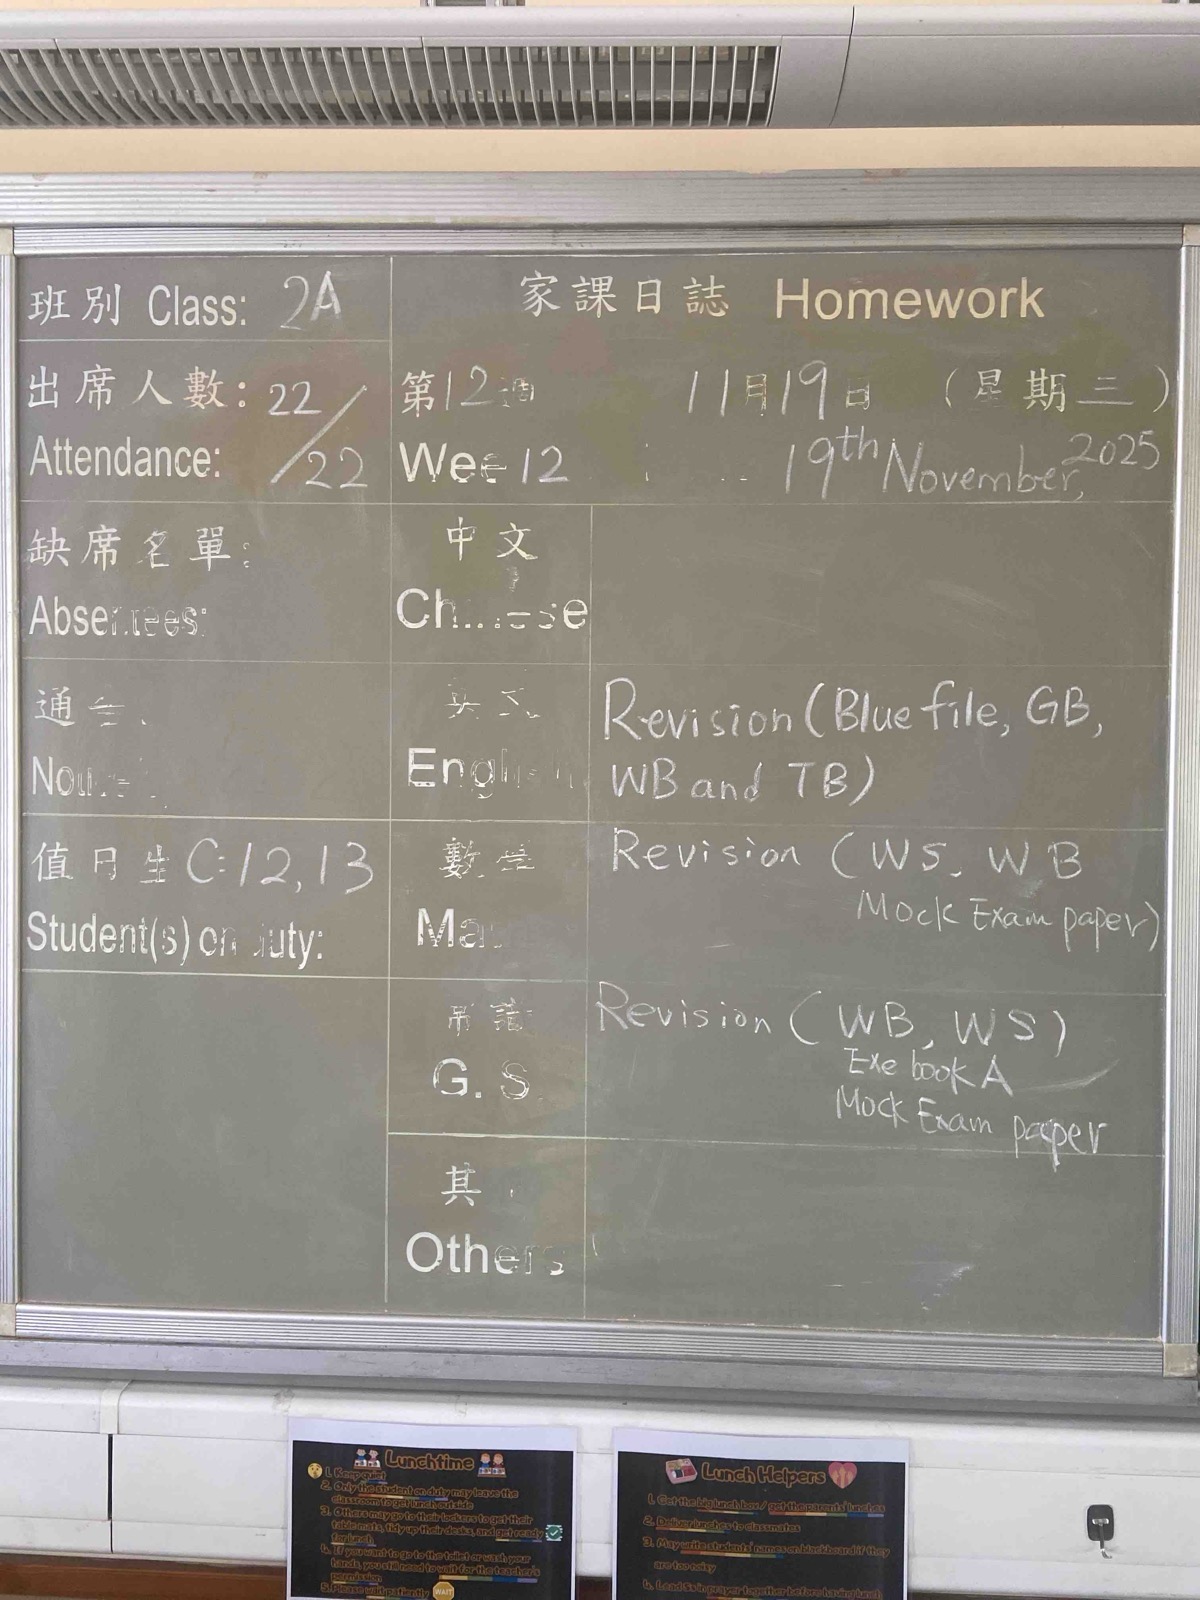 班別 Class: 2A
家課日誌 Homework
出席人數: 22/22
Attendance:
第12週 11月19日 (星期三)
Wee 12 19th November, 2025
缺席名單:
Absentees:
中文
Chinese
通告
英文
English
Revision (Blue file, GB,
WB and TB)
值日生 C: 12, 13
Student(s) on duty:
數學
Ma
Revision (WS, WB
Mock Exam paper)
常識
G. S.
Revision (WB, WS)
Exe book A
Mock Exam paper
其
Others
Lunchtime
1. Keep quiet
2. Only the student on duty may leave the
classroom to get lunch outside
3. Others may go to their lockers to get their
table mats, tidy up their desks, and get ready
for lunch.
4. If you want to go to the toilet or wash your
hands, you still need to wait for the teacher's
permission
5. Please wait patiently WAIT
Lunch Helpers
1. Get the big lunch box / get the parents' lunches
2. Deliver lunches to classmates
3. May write students' names on blackboard if they
are too noisy
4. Lead Ss in prayer together before having lunch